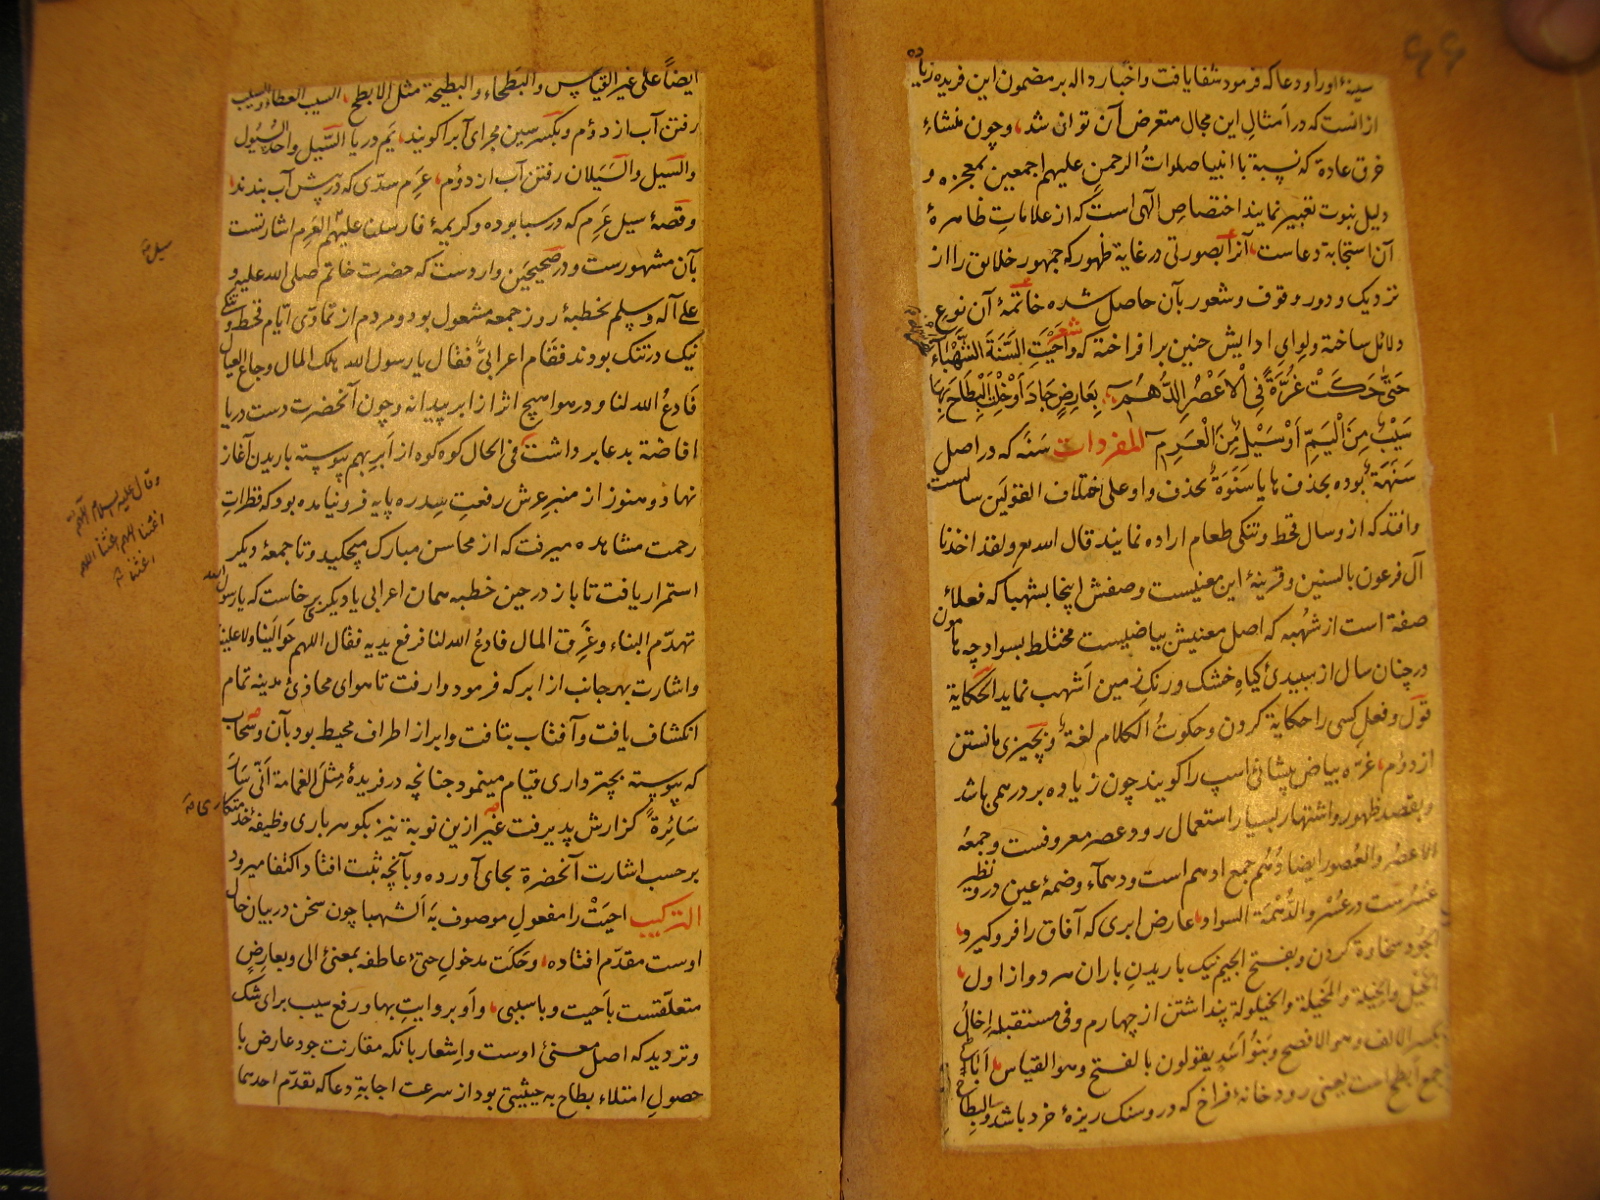 ۶۶
سینهٔ او را و دعا که فرمود شفا یافت و اخبار داله بر مضمون این فریده زیاده
ازانست که در امثال این مجال متعرض آن توان شد، و چون منشاءِ
خرق عادة که نسبة با انبیا صلواتُ الرحمنِ علیهم اجمعین بمعجزه و
دلیل نبوت تعبیر نمایند اختصاصِ الٓهی است که از علاماتِ ظاهرهٔ
آن استجابة دعاست، آنرا بصورتی در غایة ظهور که جمهور خلایق را از
نزدیک و دور وقوف و شعور بآن حاصل شده خاتمهٔ آن نوع
دلائل ساخته و لوایِ ادایش چنین برافراخته که شعر وَاَحْیَتِ السَّنَةَ الشَّهْبَاءَ
حَتّٰی حَکَتْ غُرَّةً فِی الْاَعْصُرِ الدُّهُمِ، بِعَارِضٍ جَادَ اَوْ خِلْتَ الْبِطَاحَ بِهَا
سَیْبٌ مِنَ الْیَمِّ اَوْ سَیْلٌ مِنَ الْعَرِمِ المفردات سَنَه که در اصل
سَنَهَة بوده بحذف ها یا سَنَوَةٌ بحذف واو علی اختلاف القولَین سالست
وافتد که ازو سال قحط و تنکی طعام اراده نمایند قال الله تع ولقد اخذنا
آل فرعون بالسنین و قرینهٔ این معنیست وصفش اینجا بشهبا که فعلاءُ
صفة است از شُهبه که اصل معنیش بیاضیست مختلط بسواد چه هامون
در چنان سال از سپیدیٔ کیاهِ خشک و رنک زمین اَشهب نماید الحکایة
قول و فعلِ کسی را حکایة کردن و حکوتُ الکلام لغةٌ و بچیزی مانستن
از دوُم، غرّه بیاضِ پیشانیٔ اسپ را کویند چون زیاده بر درهمی باشد
و بقصد ظهور و اشتهار بسیار استعمال رود عصر معروفست و جمعهٔ
الاعصُر والعُصور ایضا دُهُم جمع ادهم است و دهمآء و ضمهٔ عین درو نظیر
عُسُرست در عُسْر و الدُّهْمَة السواد، عارض ابری که آفاق را فرو کیرد،
الجُود سخاوة کردن و بفتح الجیم نیک باریدنِ باران هر دو از اول،
الخَیل والخِیلة والمَخیلة والخَیلولة پنداشتن از چهارم و فی مستقبله اِخالُ
بکسر الالف و هو الافصح و بَنُو اَسَدٍ یقولون بالفتح و هو القیاس، اَباطح
جمع اَبطح است یعنی رودخانهٔ فراخ که درو سنک ریزهٔ خرد باشد والبِطاح
ایضاً علی غیر القیاس والبَطحاء والبطیحة مثل الابطح، السیب العطاء والسیب
رفتن آب از دوُم و بکسر سین مجرای آبرا کویند، یَم دریا السَّیل واحد السُّیُول
والسَیل والسَّیَلان رفتن آب از دوُم، عَرِم سدّی که در پیش آب بندند،
و قصهٔ سیل عَرِم که در سبا بوده و کریمهٔ فارسلنا علیهم سیل العَرِم اشارتست
بآن مشهورست و در صحیحَین واردست که حضرت خاتم صلی الله علیه و
علی آله و سلم بخطبهٔ روز جمعه مشغول بود و مردم از تمادی ایّام قحط و تنکی
نیک در تنک بودند فقام اعرابیٌّ فقال یا رسول الله هلک المال و جاع العیال
فَادعُ الله لنا و در هوا هیچ اثر از ابر پیدا نه و چون آنحضرت دست دریا
افاضة بدعا برداشت فی الحال کوه کوه از اَبر بهم پیوسته باریدن آغاز
نهاد و هنوز از منبرِ عرش رفعتِ سِدره پایه فرو نیامده بود که قطراتِ
رحمت مشاهده میرفت که از محاسن مبارک میچکید و تا جمعهٔ دیکر
استمرار یافت تا باز در حین خطبه همان اعرابی یا دیکری برخاست که یا رسول الله
تهدّم البناء و غَرِق المال فادعُ الله لنا فرفع یدیه فقال اللهم حَوالَینا ولا علینا
و اشارت بهر جانب از ابر که فرمود وا رفت تا هوای محاذیٔ مدینه تمام
انکشاف یافت و آفتاب بتافت و ابر از اطراف محیط بود بآن و سحاب
که پیوسته بچترداری قیام مینمود چنانچه در فریدهٔ مِثلَ الغمامة اَنّٰی سَارَ
سَائِرةً کزارش پذیرفت غیر ازین نوبة نیز بکوهرباری وظیفهٔ خدمتکاری
برحسب اشارت آنحضرة بجای آورده و بآنچه ثبت افتاد اکتفا میرود
الترکیب احیَتْ را مفعولِ موصوف به اَلشهبا چون سخن در بیان حال
اوست مقدّم افتاده، و حَکَت مدخولِ حتیٰ عاطفه بمعنیٔ الی و بعارضٍ
متعلقست باَحیت و با سببی، و اَو بروایتِ بها و رفع سیب برای شک
و تردید که اصل معنیٔ اوست و اِشعار بانکه مقارنت جود عارض با
حصولِ امتلاء بطاح به حیثیتی بود از سرعت اجابةِ دعا که تقدّم احدهما
سیل صح
وقال علیه السلام اللهم
اغثنا اللهم اغثنا اللهم
اغثنا